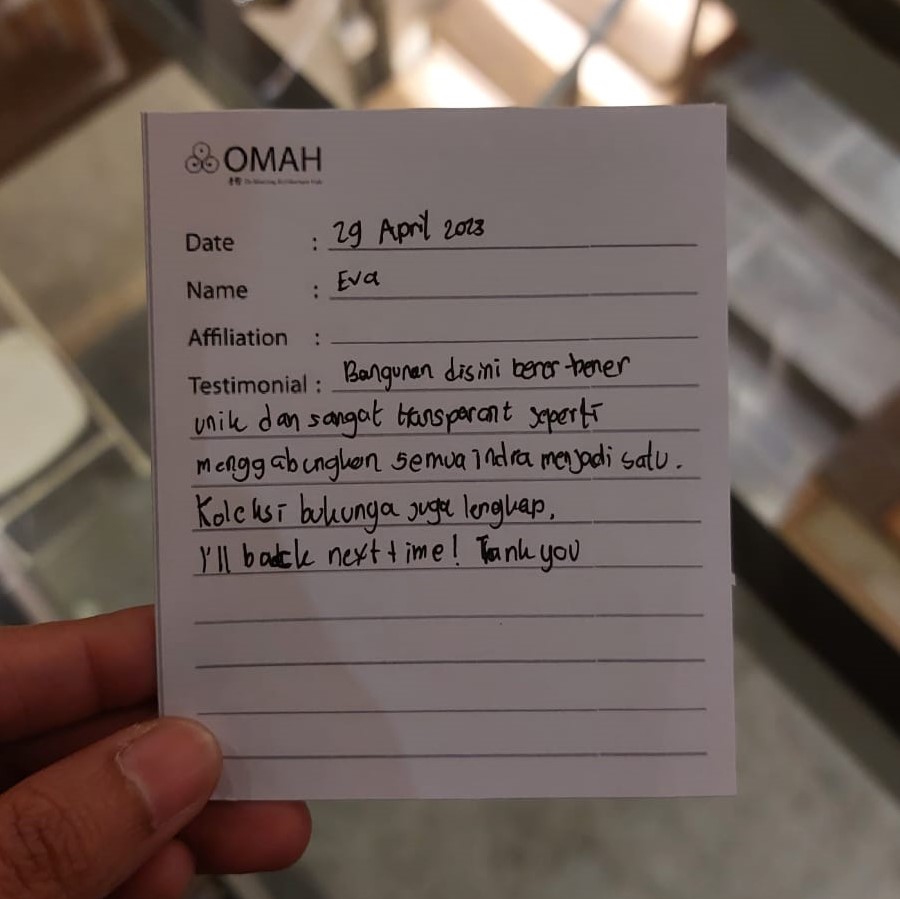 OMAH
Date : 29 April 2023
Name : Eva
Affiliation :
Testimonial : Bangunan disini bener-bener
unik dan sangat transparant seperti
menggabungkan semua indra menjadi satu.
Koleksi bukunga juga lengkap,
I'll back next time! Tank you